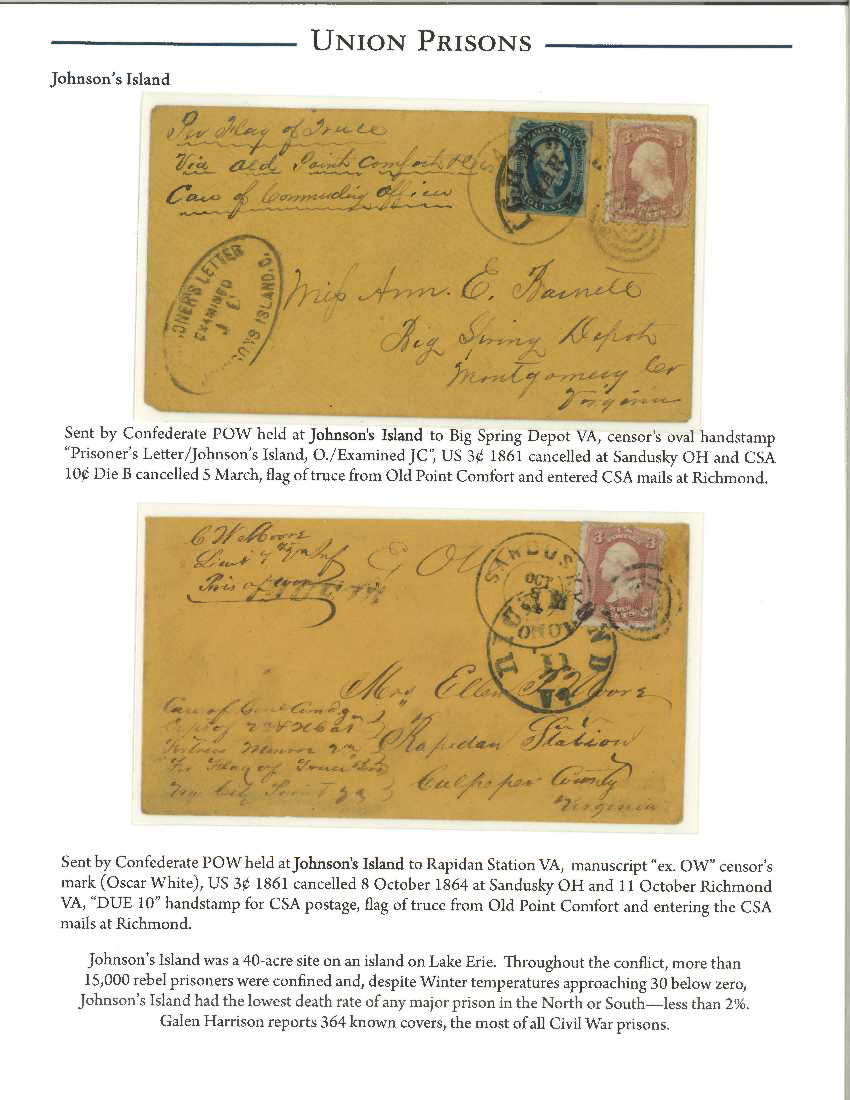 UNION PRISONS
Johnson's Island
Per Flag of Truce
Via Old Point Comfort
Care of Commnding Officer
PRISONER'S LETTER
EXAMINED
J C
SONS ISLAND, O.
3 3
Miss Ann. E. Barnett
Big Spring Depot
Montgomery Co
Virginia
Sent by Confederate POW held at Johnson's Island to Big Spring Depot VA, censor's oval handstamp
“Prisoner's Letter/Johnson's Island, O./Examined JC”, US 3¢ 1861 cancelled at Sandusky OH and CSA
10¢ Die B cancelled 5 March, flag of truce from Old Point Comfort and entered CSA mails at Richmond.
C W Moore
Lieut 7 Va Inf
Pris of war
SANDUSKY
OCT
OHIO
3 3
11
VA
Mrs Ellen Moore
Rapidan Station
Culpeper County
Virginia
Care of Genl Comdg
Fortress Monroe Va
Flag of Truce
Sent by Confederate POW held at Johnson's Island to Rapidan Station VA, manuscript “ex. OW” censor's
mark (Oscar White), US 3¢ 1861 cancelled 8 October 1864 at Sandusky OH and 11 October Richmond
VA, “DUE 10” handstamp for CSA postage, flag of truce from Old Point Comfort and entering the CSA
mails at Richmond.
Johnson's Island was a 40-acre site on an island on Lake Erie. Throughout the conflict, more than
15,000 rebel prisoners were confined and, despite Winter temperatures approaching 30 below zero,
Johnson's Island had the lowest death rate of any major prison in the North or South—less than 2%.
Galen Harrison reports 364 known covers, the most of all Civil War prisons.